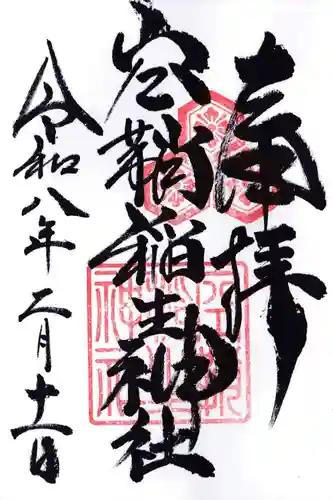 奉拝
空鞘稲生神社
令和八年二月十一日